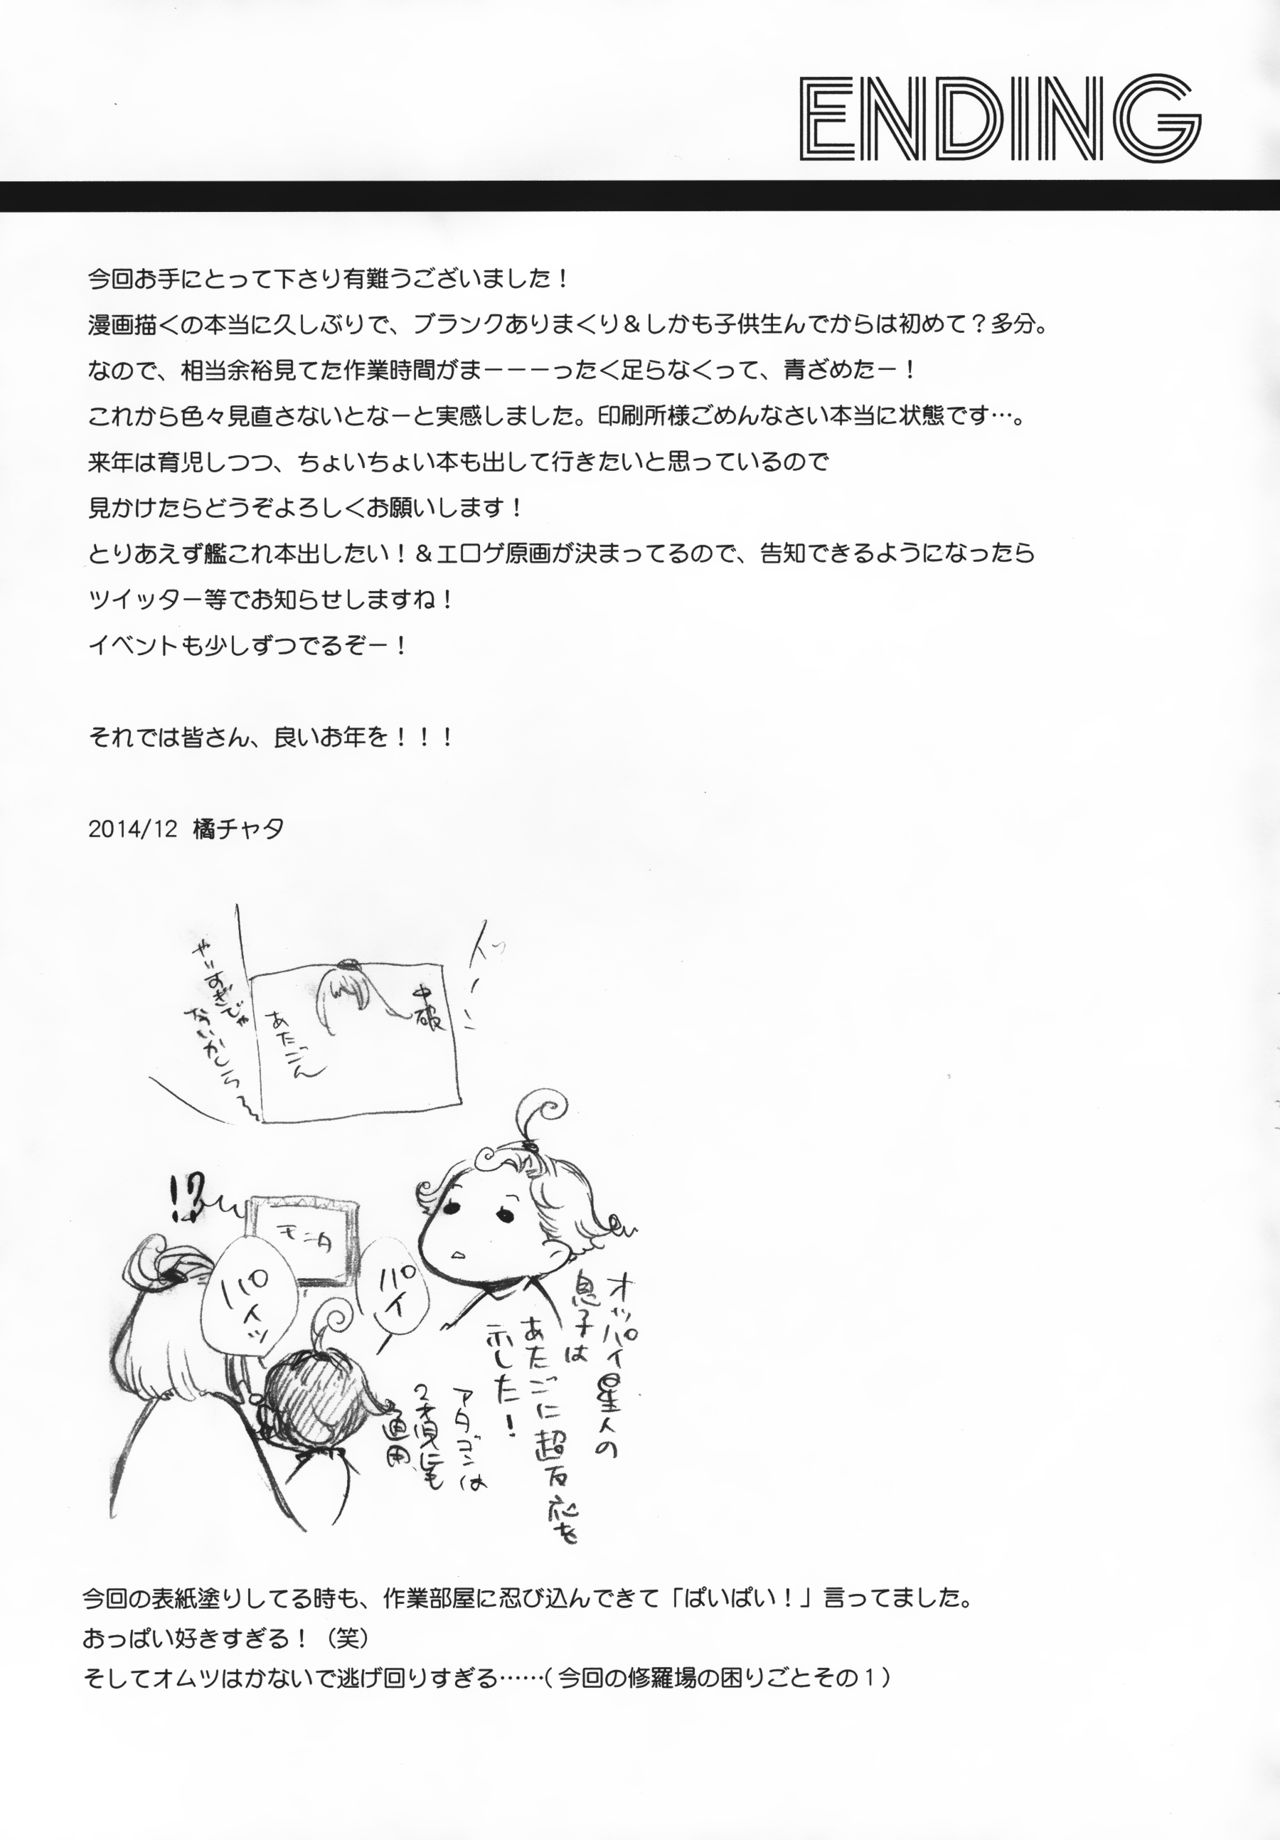 ENDING
今回お手にとって下さり有難うございました！
漫画描くの本当に久しぶりで、ブランクありまくり＆しかも子供生んでからは初めて？多分。
なので、相当余裕見てた作業時間がまーーーったく足らなくって、青ざめたー！
これから色々見直さないとなーと実感しました。印刷所様ごめんなさい本当に状態です…。
来年は育児しつつ、ちょいちょい本も出して行きたいと思っているので
見かけたらどうぞよろしくお願いします！
とりあえず艦これ本出したい！＆エロゲ原画が決まってるので、告知できるようになったら
ツイッター等でお知らせしますね！
イベントも少しずつでるぞー！
それでは皆さん、良いお年を！！！
2014/12 橘チャタ
中破
あたごん
やりすぎじゃ
ないかしら〜
!?
モニタ
パイ
パイッ
オッパイ星人の
息子は
あたごに超反応を
示した！
アタゴンは
2才児にも
通用
今回の表紙塗りしてる時も、作業部屋に忍び込んできて「ぱいぱい！」言ってました。
おっぱい好きすぎる！（笑）
そしてオムツはかないで逃げ回りすぎる……（今回の修羅場の困りごとその１）